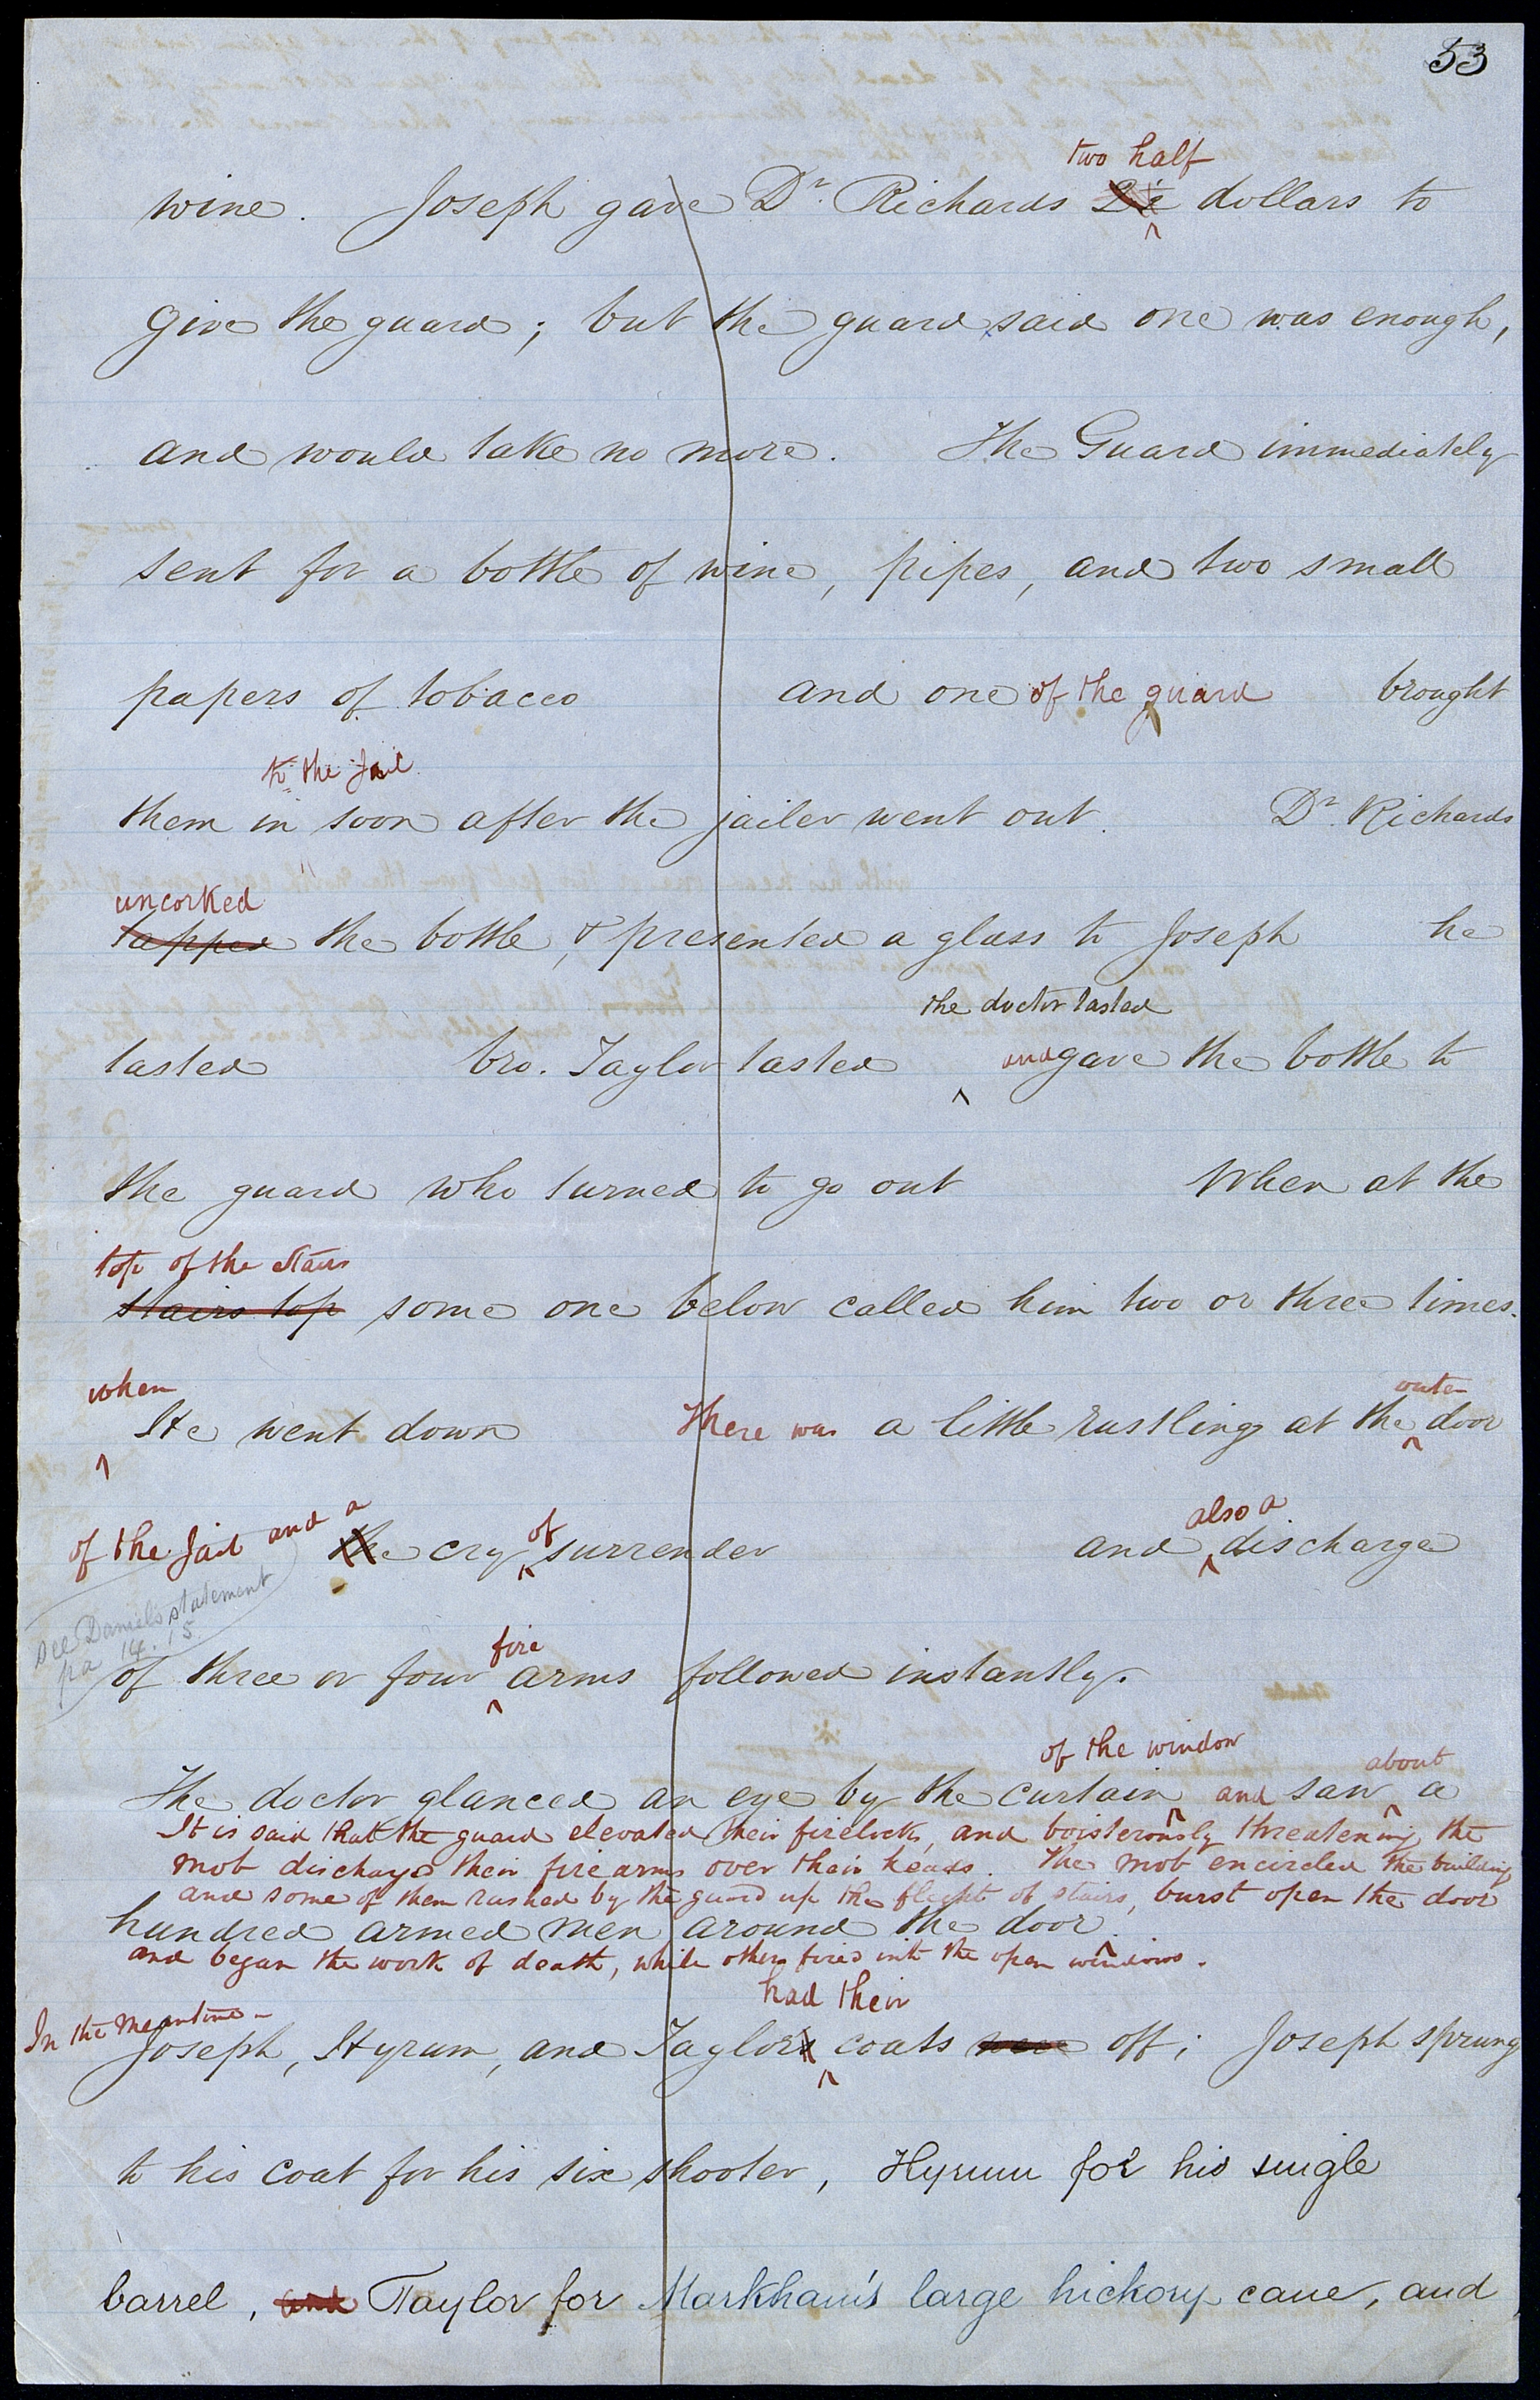 53
two half
wine. Joseph gave Dr. Richards dollars to
give the guard; but the guard said one was enough,
and would take no more. The Guard immediately
sent for a bottle of wine, pipes, and two small
papers of tobacco and one of the guard brought
to the Jail
them in soon after the jailer went out. Dr. Richards
uncorked
tapped the bottle, & presented a glass to Joseph he
the doctor tasted
tasted bro. Taylor tasted and gave the bottle to
the guard who turned to go out When at the
top of the stairs
stairs top some one below called him two or three times.
when outer
He went down There was a little rustling at the door
of the Jail and a of also a
the cry surrender and discharge
see Daniels statement
pa 14. 15.
fire
of three or four arms followed instantly.
of the window about
The doctor glanced an eye by the curtain and saw a
It is said that the guard elevated their firelocks, and boisterously threatening the
mob discharged their firearms over their heads. The mob encircled the building
and some of them rushed by the guard up the flight of stairs, burst open the door
hundred armed men around the door.
and began the work of death, while others fired into the open windows.
In the meantime had their
Joseph, Hyrum, and Taylor's coats were off; Joseph sprung
to his coat for his six shooter, Hyrum for his single
barrel, and Taylor for Markham's large hickory cane, and